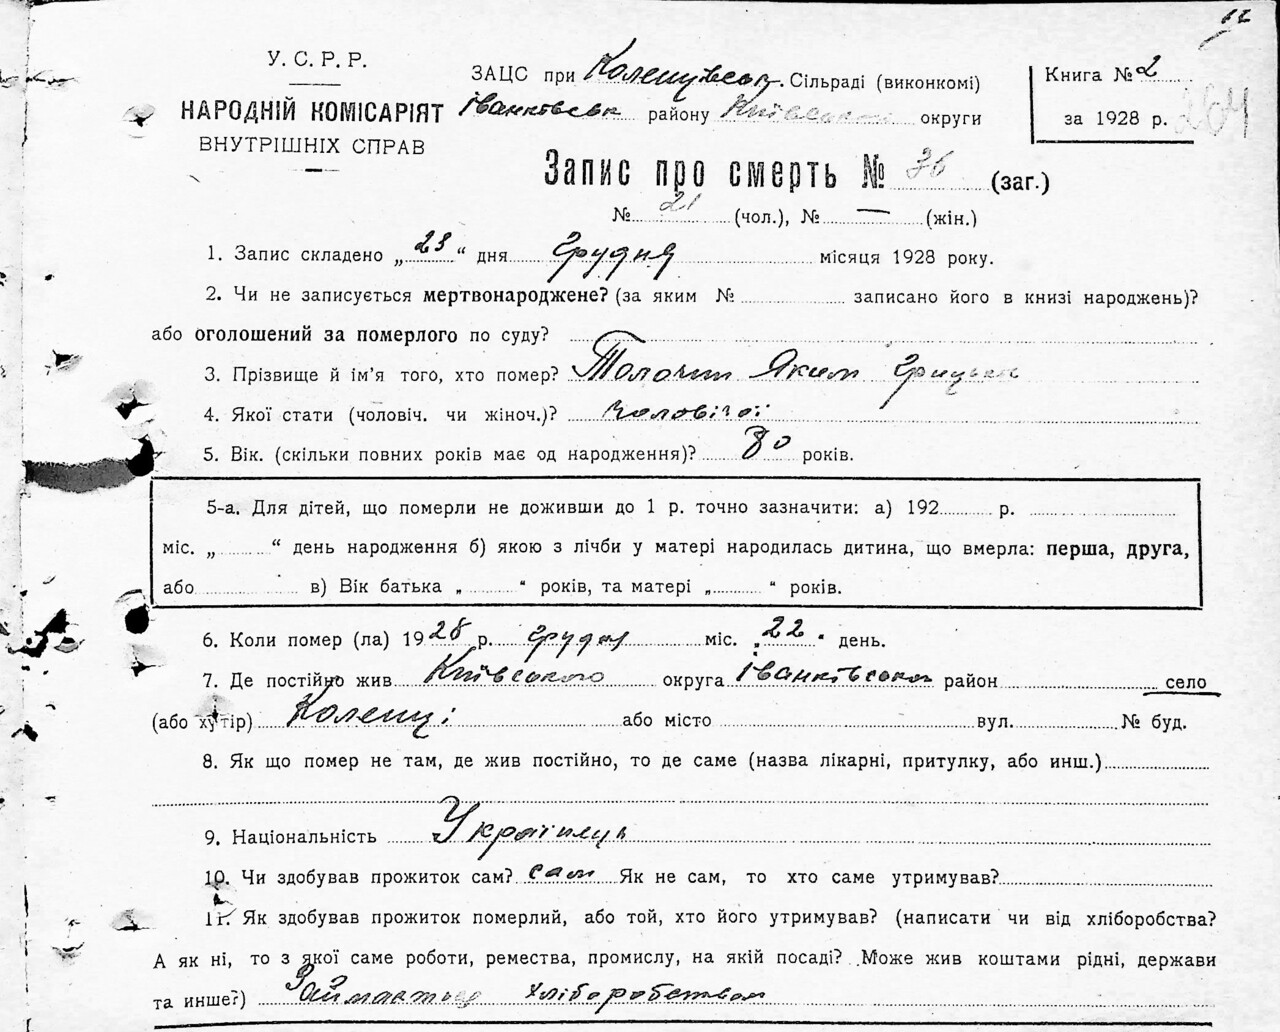 12
У. С. Р. Р.
НАРОДНІЙ КОМІСАРІЯТ
ВНУТРІШНІХ СПРАВ
ЗАЦС при Коленцівськ. Сільраді (виконкомі)
Іванківськ району Київської округи
Книга № 2
за 1928 р.
264
Запис про смерть № 36 (заг.)
№ 21 (чол.), № — (жін.)
1. Запис складено „23“ дня Грудня місяця 1928 року.
2. Чи не записується мертвонароджене? (за яким № записано його в книзі народжень)?
або оголошений за померлого по суду?
3. Прізвище й ім'я того, хто помер? Толочин Яким Грицьків
4. Якої стати (чоловіч. чи жіноч.)? чоловічої
5. Вік. (скільки повних років має од народження)? 80 років.
5-а. Для дітей, що померли не доживши до 1 р. точно зазначити: а) 192 р.
міс. „ “ день народження б) якою з лічби у матері народилась дитина, що вмерла: перша, друга,
або в) Вік батька „ “ років, та матері „ “ років.
6. Коли помер (ла) 1928 р. грудня міс. „22“ день.
7. Де постійно жив Київського округа Іванківського район село
(або хутір) Коленці або місто вул. № буд.
8. Як що помер не там, де жив постійно, то де саме (назва лікарні, притулку, або инш.)
9. Національність Українець
10. Чи здобував прожиток сам? сам Як не сам, то хто саме утримував?
11. Як здобував прожиток померлий, або той, хто його утримував? (написати чи від хліборобства?
А як ні, то з якої саме роботи, ремества, промислу, на якій посаді? Може жив коштами рідні, держави
та инше?) Займається хліборобством